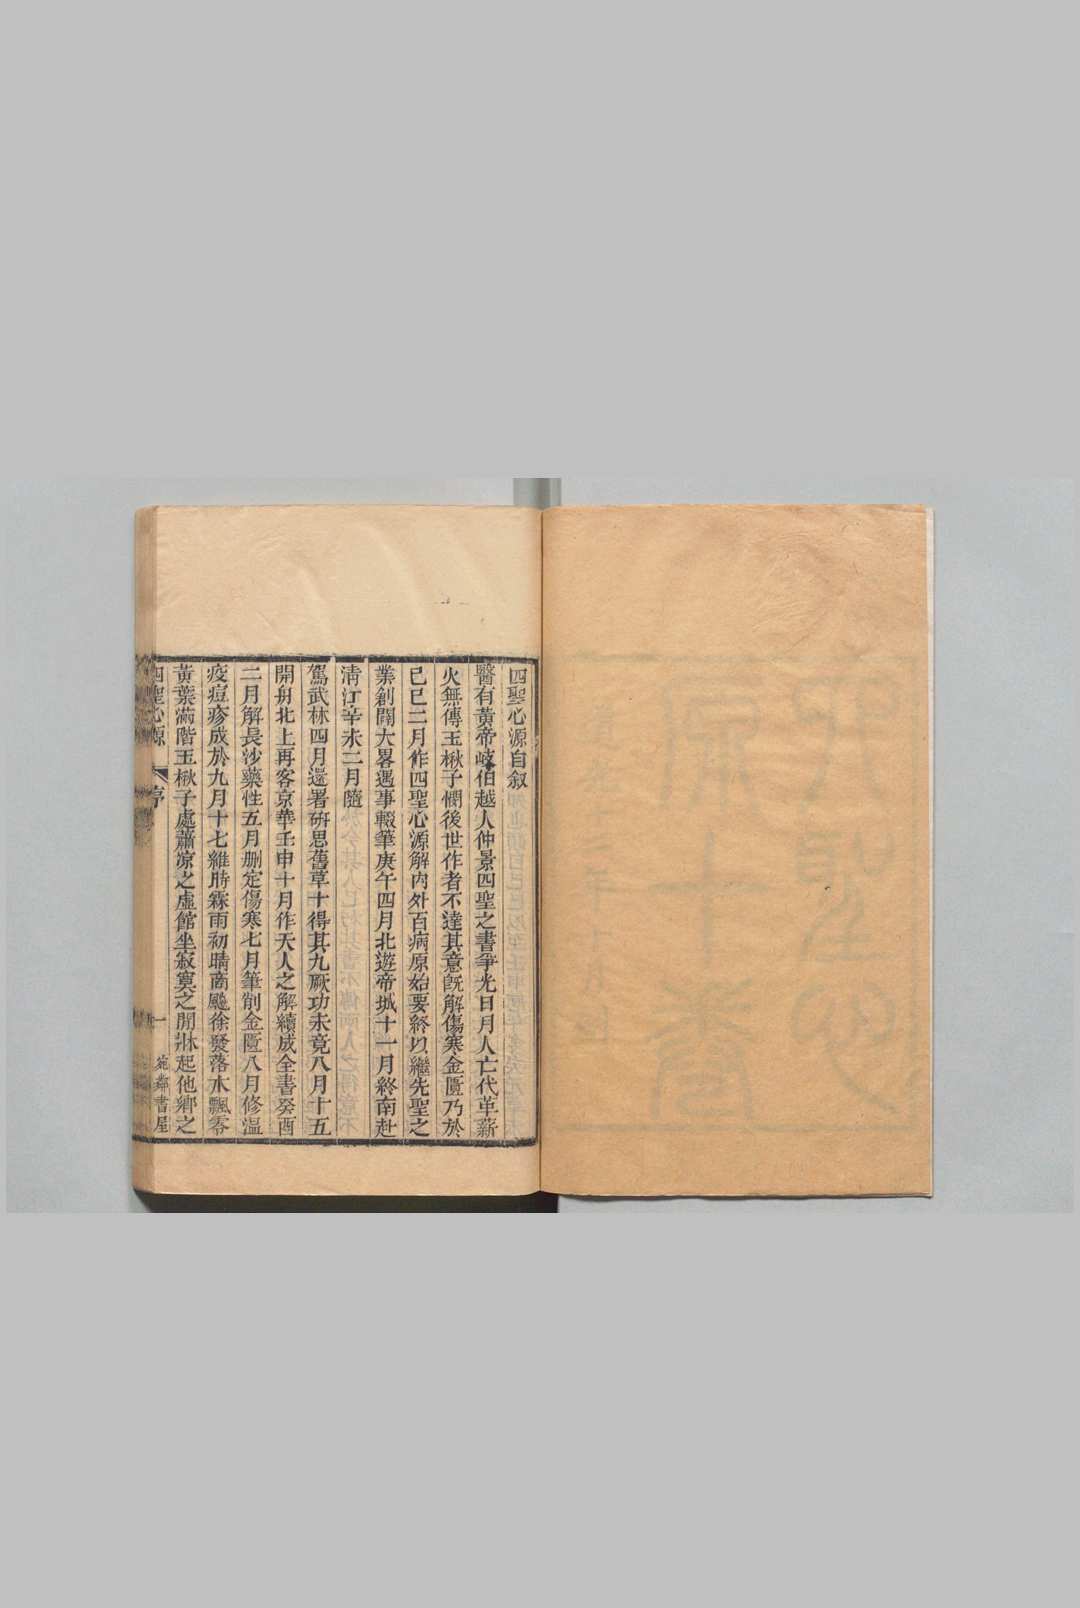 四聖心源自叙
醫有黃帝岐伯越人仲景四聖之書爭光日月人亡代革薪
火無傳玉楸子憫後世作者不達其意旣解傷寒金匱乃於
己巳二月作四聖心源解內外百病原始要終以繼先聖之
業創闢大畧遇事輟筆庚午四月北遊帝城十一月終南赴
清江辛未二月隨
駕武林四月還署硏思舊草十得其九厥功未竟八月十五
開舟北上再客京華壬申十月作天人之解續成全書癸酉
二月解長沙藥性五月刪定傷寒七月筆削金匱八月修溫
疫痘疹成於九月十七維時霖雨初晴商飈徐發落木飄零
黃葉滿階玉楸子處蕭凉之虛館坐寂寞之閒牀起他鄉之
四聖心源 序 一 苑鄰書屋